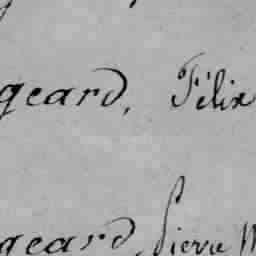 geard, Félix
geard, Pierre M